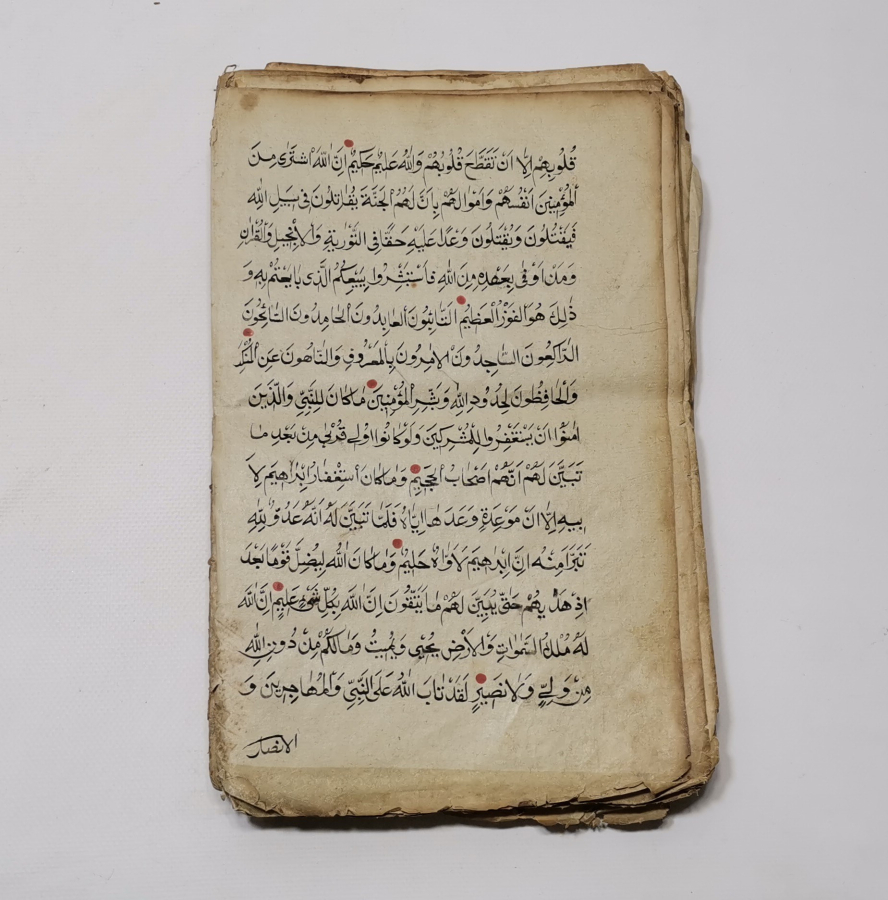 قُلُوبِهِمْ اِلَّا اَنْ تَقَطَّعَ قُلُوبُهُمْ وَاللّٰهُ عَلِيمٌ حَكِيمٌ اِنَّ اللّٰهَ اشْتَرٰى مِنَ
الْمُؤْمِنِينَ اَنْفُسَهُمْ وَاَمْوَالَهُمْ بِاَنَّ لَهُمُ الْجَنَّةَ يُقَاتِلُونَ فِى سَبِيلِ اللّٰهِ
فَيَقْتُلُونَ وَيُقْتَلُونَ وَعْدًا عَلَيْهِ حَقًّا فِى التَّوْرٰيةِ وَالْاِنْجِيلِ وَالْقُرْاٰنِ
وَمَنْ اَوْفٰى بِعَهْدِهِ مِنَ اللّٰهِ فَاسْتَبْشِرُوا بِبَيْعِكُمُ الَّذِى بَايَعْتُمْ بِهِ وَ
ذٰلِكَ هُوَ الْفَوْزُ الْعَظِيمُ التَّائِبُونَ الْعَابِدُونَ الْحَامِدُونَ السَّائِحُونَ
الرَّاكِعُونَ السَّاجِدُونَ الْاٰمِرُونَ بِالْمَعْرُوفِ وَالنَّاهُونَ عَنِ الْمُنْكَرِ
وَالْحَافِظُونَ لِحُدُودِ اللّٰهِ وَبَشِّرِ الْمُؤْمِنِينَ مَا كَانَ لِلنَّبِىِّ وَالَّذِينَ
اٰمَنُوْا اَنْ يَسْتَغْفِرُوا لِلْمُشْرِكِينَ وَلَوْ كَانُوا اُولِى قُرْبٰى مِنْ بَعْدِ مَا
تَبَيَّنَ لَهُمْ اَنَّهُمْ اَصْحَابُ الْجَحِيمِ وَمَا كَانَ اسْتِغْفَارُ اِبْرٰاهِيمَ لِاَ
بِيهِ اِلَّا عَنْ مَوْعِدَةٍ وَعَدَهَا اِيَّاهُ فَلَمَّا تَبَيَّنَ لَهُ اَنَّهُ عَدُوٌّ لِلّٰهِ
تَبَرَّاَ مِنْهُ اِنَّ اِبْرٰهِيمَ لَاَوَّاهٌ حَلِيمٌ وَمَا كَانَ اللّٰهُ لِيُضِلَّ قَوْمًا بَعْدَ
اِذْ هَدٰيهُمْ حَتّٰى يُبَيِّنَ لَهُمْ مَا يَتَّقُونَ اِنَّ اللّٰهَ بِكُلِّ شَىْءٍ عَلِيمٌ اِنَّ اللّٰهَ
لَهُ مُلْكُ السَّمٰوَاتِ وَالْاَرْضِ يُحْيِى وَيُمِيتُ وَمَا لَكُمْ مِنْ دُونِ اللّٰهِ
مِنْ وَلِىٍّ وَلَا نَصِيرٍ لَقَدْ تَابَ اللّٰهُ عَلَى النَّبِىِّ وَالْمُهَاجِرِينَ وَ
الانصار